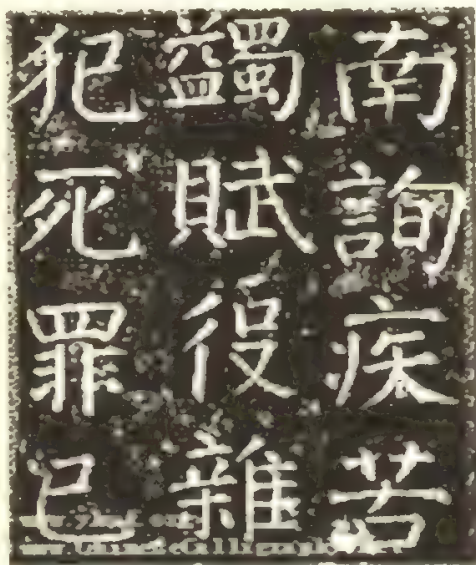 南詢疾苦
蠲賦役雜
犯死罪已